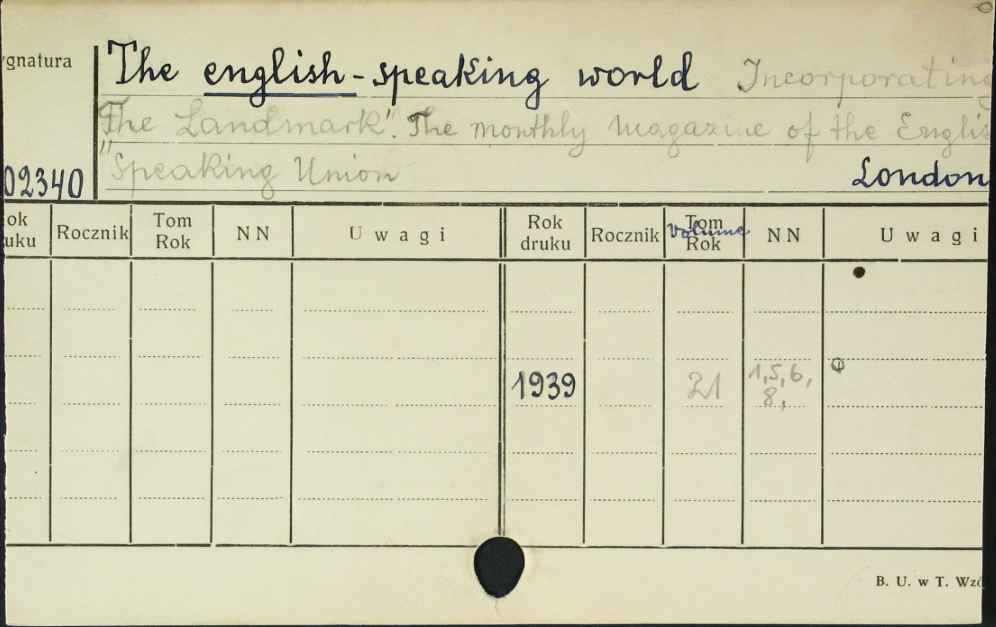 ygnatura
The english-speaking world Incorporating
The Landmark". The monthly magazine of the Englis
"Speaking Union
02340 London
ok uku Rocznik Tom Rok NN Uwagi Rok druku Rocznik Tom Rok Volume NN Uwagi
1939 21 1,5,6,
8,
B. U. w T. Wzó